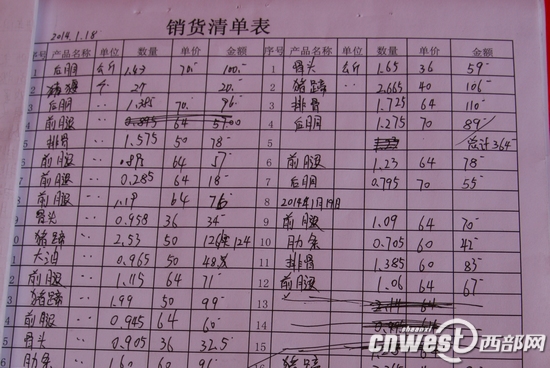 销货清单表
2014.1.18
序号 产品名称 单位 数量 单价 金额 序号 产品名称 单位 数量 单价 金额
1 后腿 公斤 1.43 70 100 1 骨头 公斤 1.65 36 59
2 27 20 2 猪蹄 2.665 40 106
3 后腿 1.385 70 96 3 排骨 1.725 64 110
4 前腿 0.895 64 57.00 4 后腿 1.275 70 89
5 排骨 1.575 50 78 5 合计364
6 前腿 0.895 64 57 6 前腿 1.23 64 78
7 前腿 0.285 64 18 7 后腿 0.795 70 55
8 前腿 1.19 64 76 8 2014年1月19日
9 骨头 0.958 36 34 9 前腿 1.09 64 70
0 猪蹄 2.53 50 124 10 肋条 0.705 60 42
1 大油 0.965 50 48 11 排骨 1.385 60 83
2 前腿 1.115 64 71 12 前腿 1.06 64 67
3 猪蹄 1.99 50 99 13 2.14 64
4 前腿 0.945 64 60 14
5 骨头 0.905 36 32.5 15
肋条 1.60 60 96 猪蹄
cnwest 西部网